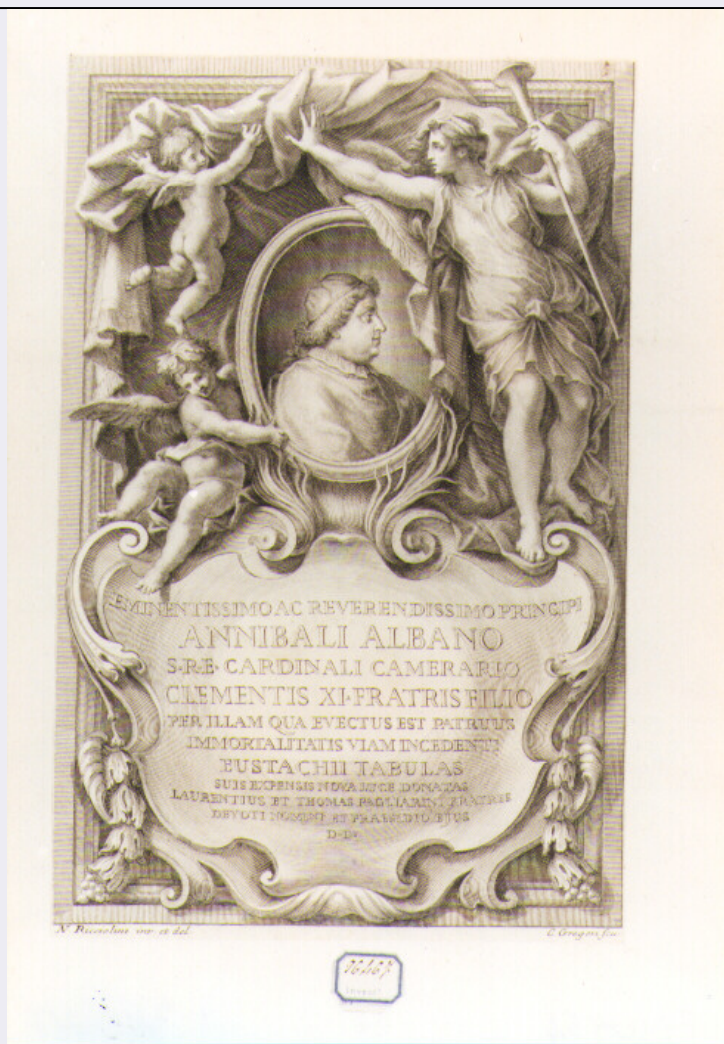 EMINENTISSIMO AC REVERENDISSIMO PRINCIPI
ANNIBALI ALBANO
S·R·E· CARDINALI CAMERARIO
CLEMENTIS XI·FRATRIS FILIO
PER ILLAM QUA EVECTUS EST PATRUUS
IMMORTALITATIS VIAM INCEDENTI
EUSTACHII TABULAS
SUIS EXPENSIS NOVA LUCE DONATAS
LAURENTIUS ET THOMAS PAGLIARINI FRATRES
DEVOTI NOMINI ET PRAESIDIO EJUS
D·D·
N Ricciolini inv et del
C Gregori scu